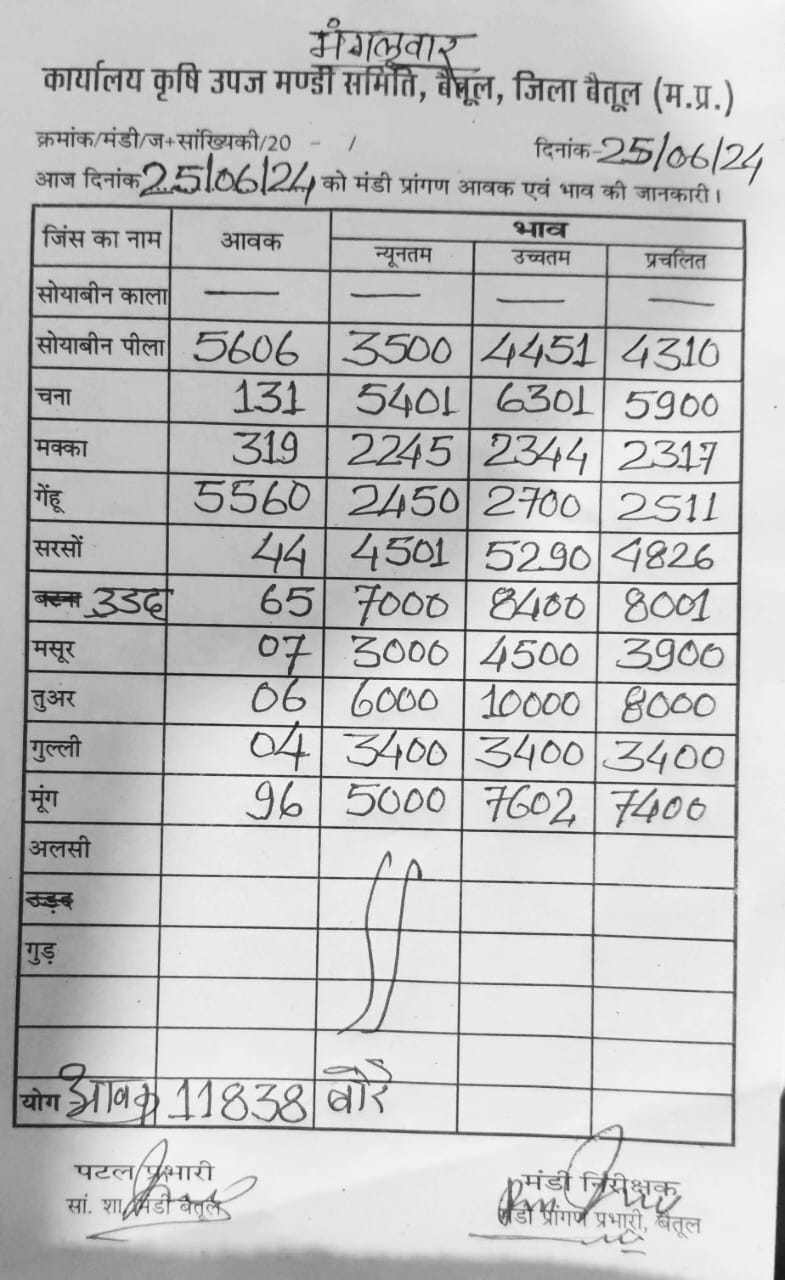 मंगलवार
कार्यालय कृषि उपज मण्डी समिति, बैतूल, जिला बैतूल (म.प्र.)
क्रमांक/मंडी/ज+सांख्यिकी/20 - / दिनांक-25/06/24
आज दिनांक 25/06/24 को मंडी प्रांगण आवक एवं भाव की जानकारी।
जिंस का नाम आवक भाव
न्यूनतम उच्चतम प्रचलित
सोयाबीन काला — — — —
सोयाबीन पीला 5606 3500 4451 4310
चना 131 5401 6301 5900
मक्का 319 2245 2344 2317
गेंहू 5560 2450 2700 2511
सरसों 44 4501 5290 4826
बटना उडद 65 7000 8400 8001
मसूर 07 3000 4500 3900
तुअर 06 6000 10000 8000
गुल्ली 04 3400 3400 3400
मूंग 96 5000 7602 7400
अलसी
उड़द
गुड़
योग आवक 11838 बोरे
पटल प्रभारी मंडी निरीक्षक
सां. शा. मंडी बैतूल मंडी प्रांगण प्रभारी, बैतूल